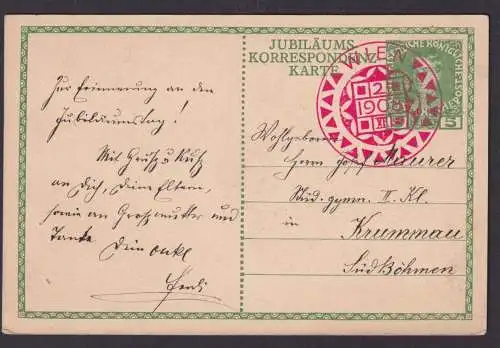 JUBILÄUMS
KORRESPONDENZ-
KARTE
KAISERLICHE KÖNIGLICHE ÖST. POST
5
WIEN
2
1908
XII
Zur Erinnerung an den
Jubiläumstag!
Mit Gruß u Kuß
an Dich, Deine Eltern,
sowie an Großmutter und
Tante
Dein Onkel
Ferdi
Wohlgeboren
Herrn Josef Maurer
Stud. gymn. II. Kl.
in
Krummau
Südböhmen